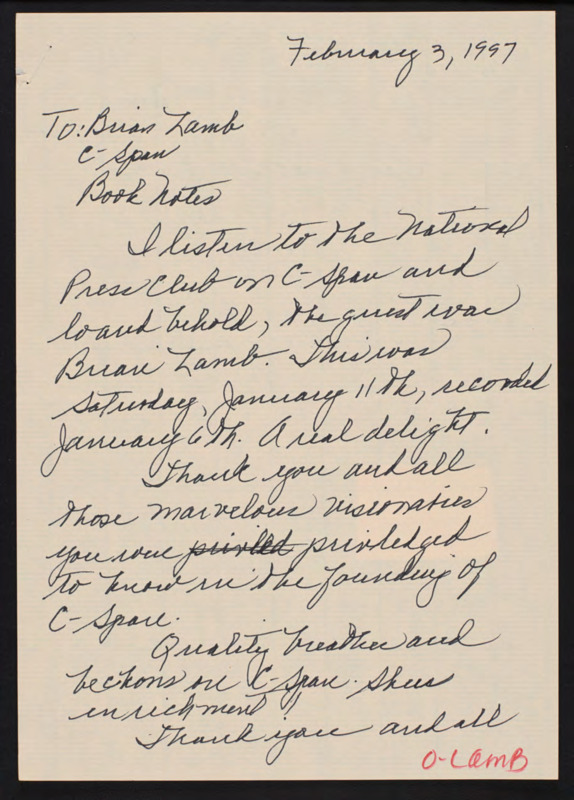 February 3, 1997
To: Brian Lamb
C-Span
Book Notes
I listen to the National
Press Club on C-Span and
lo and behold, the guest was
Brian Lamb. This was
Saturday, January 11th, recorded
January 6th. A real delight.
Thank you and all
those marvelous visionaries
you were privled priviledged
to know in the founding of
C-Span.
Quality breathes and
beckons on C-Span. Sheer
enrichment!
Thank you and all
O-LAMB